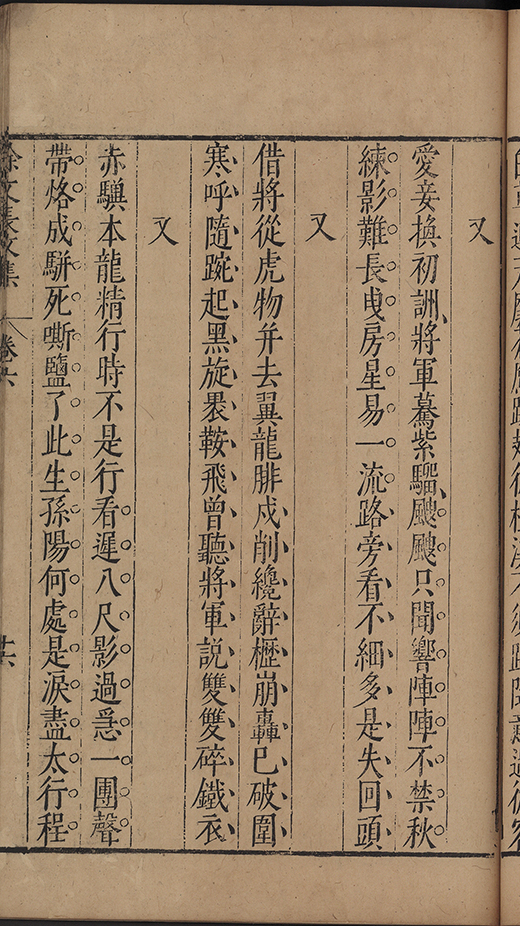 又
愛妾換初詶將軍驀紫騮颼颼只聞響陣陣不禁秋
練影難長曳房星易一流路旁看不細多是失回頭
又
借將從虎物并去翼龍腓戍削纔辭櫪崩轟已破圍
寒呼隨踠起黑旋褁鞍飛曾聽將軍説雙雙碎鐵衣
又
赤驥本龍精行時不是行看遲八尺影過急一團聲
帶烙成駢死嘶鹽了此生孫陽何處是淚盡太行程
徐文長文集
卷六
十六